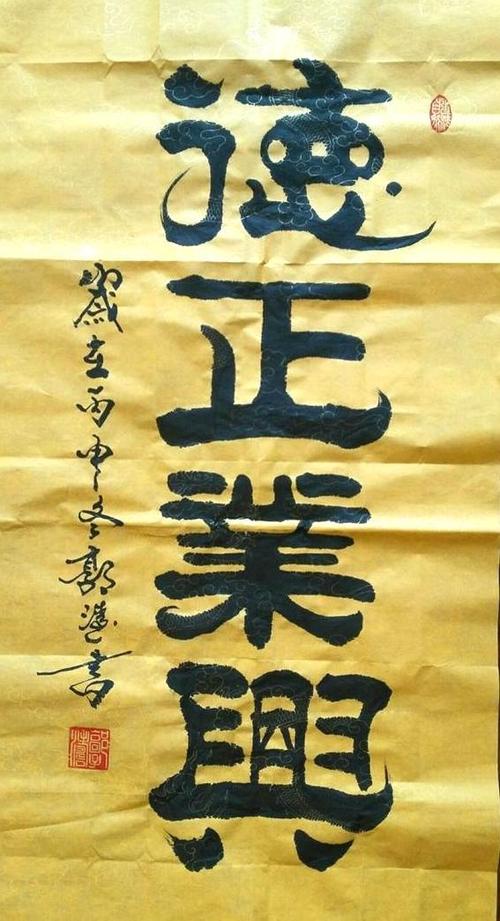 德正業興
歲在丙申冬郭書